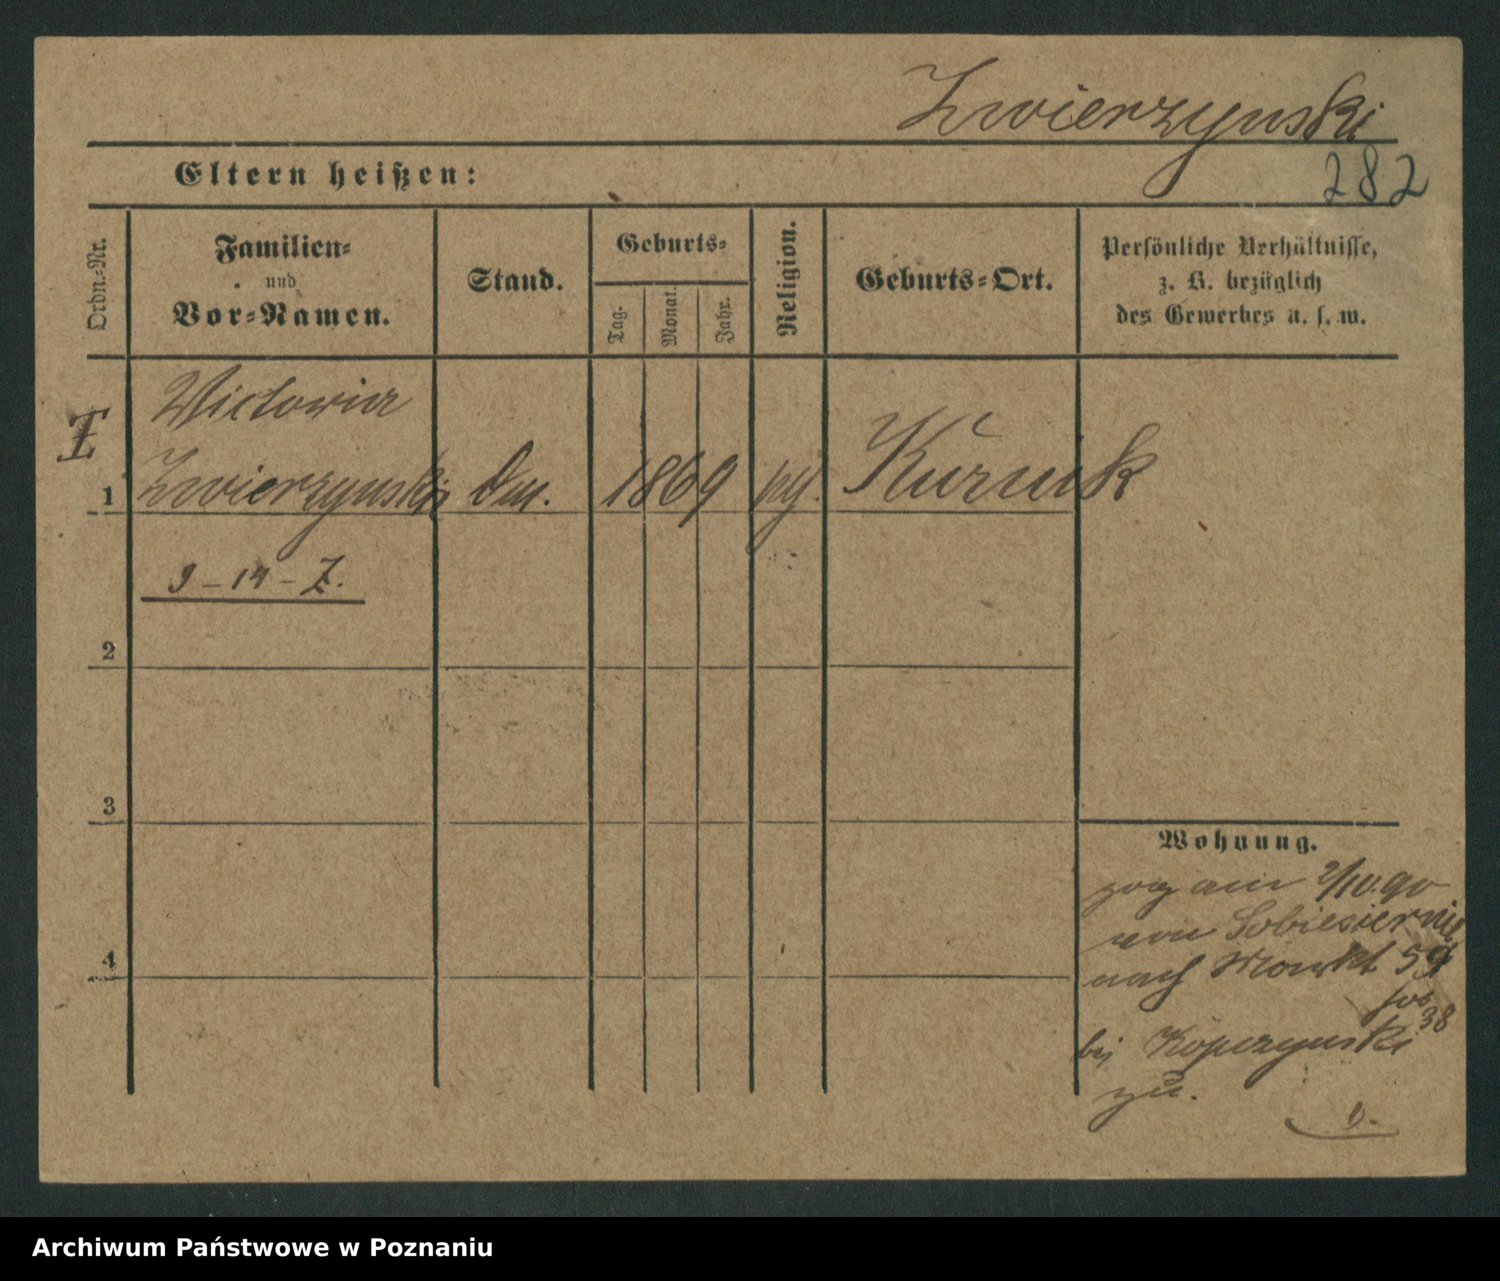 Zwierzynski
282
Eltern heißen:
Ordn.-Nr.
Familien-
und
Vor-Namen.
Stand.
Geburts-
Tag.
Monat.
Jahr.
Religion.
Geburts-Ort.
Persönliche Verhältnisse,
z. B. bezüglich
des Gewerbes u. s. w.
Victoria
I
1 Zwierzynski 1869 Kurnik
9-14-Z.
2
3
4
Wohnung.
zog am 2/10.90
von Sobiesiernie
nach Markt 59
38
bei Kopczynski
zu.
Archiwum Państwowe w Poznaniu